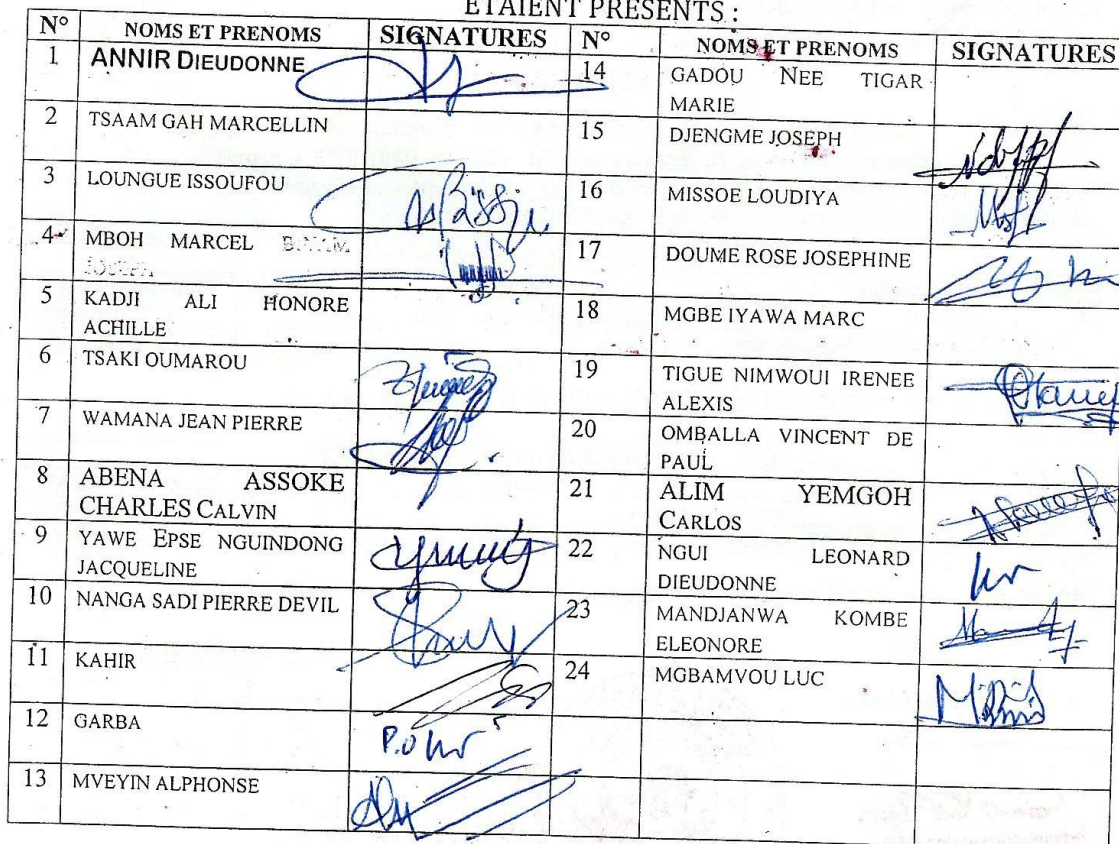 ETAIENT PRESENTS :
N° NOMS ET PRENOMS SIGNATURES N° NOMS ET PRENOMS SIGNATURES
1 ANNIR DIEUDONNE 14 GADOU NEE TIGAR
MARIE
2 TSAAM GAH MARCELLIN 15 DJENGME JOSEPH
3 LOUNGUE ISSOUFOU 16 MISSOE LOUDIYA
4 MBOH MARCEL 17 DOUME ROSE JOSEPHINE
5 KADJI ALI HONORE
ACHILLE 18 MGBE IYAWA MARC
6 TSAKI OUMAROU 19 TIGUE NIMWOUI IRENEE
ALEXIS
7 WAMANA JEAN PIERRE 20 OMBALLA VINCENT DE
PAUL
8 ABENA ASSOKE
CHARLES CALVIN 21 ALIM YEMGOH
CARLOS
9 YAWE EPSE NGUINDONG
JACQUELINE 22 NGUI LEONARD
DIEUDONNE
10 NANGA SADI PIERRE DEVIL 23 MANDJANWA KOMBE
ELEONORE
11 KAHIR 24 MGBAMVOU LUC
12 GARBA P.O
13 MVEYIN ALPHONSE